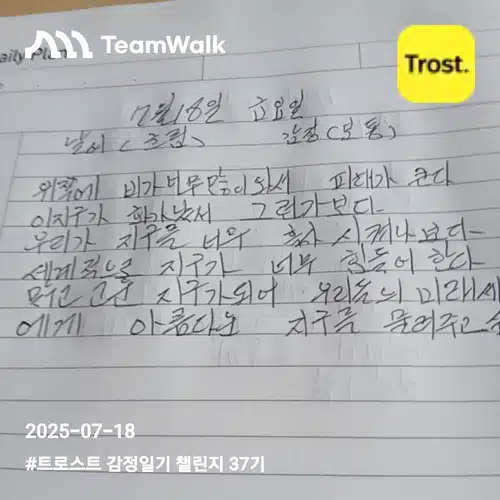 TeamWalk
Trost.
aily Plan
7월 18일 금요일
날씨 (흐림) 감정 (보통)
위쪽에 비가 너무 많이 와서 피해가 크다
이지구가 화가 났서 그런가보다
우리가 지구를 너무 혹사 시켜나보다
세계적으로 지구가 너무 힘들어 한다
지구가되어 우리들의 미래세
에게 아름다운 지구를 물려주고
2025-07-18
#트로스트 감정일기 챌린지 37기